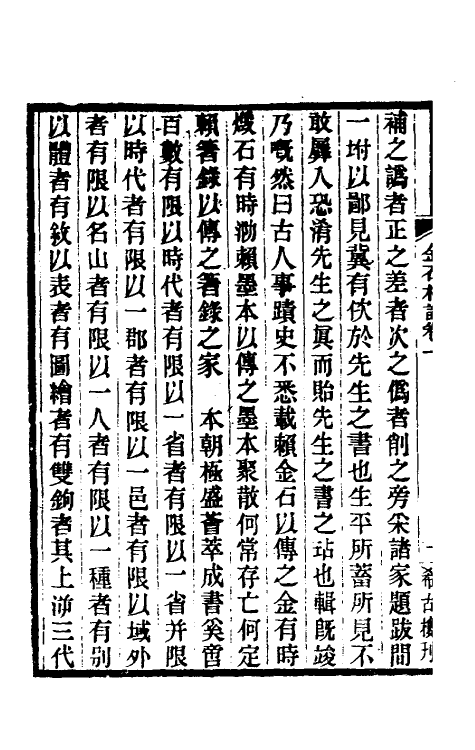 補之譌者正之差者次之僞者削之旁采諸家題跋間
一坿以鄙見冀有佽於先生之書也生平所蓄所見不
敢羼入恐淆先生之眞而貽先生之書之玷也輯旣竣
乃嘅然曰古人事蹟史不悉載賴金石以傳之金有時
燬石有時泐賴墨本以傳之墨本聚散何常存亡何定
賴箸錄以傳之箸錄之家　本朝極盛薈萃成書奚啻
百數有限以時代者有限以一省者有限以一省并限
以時代者有限以一郡者有限以一邑者有限以域外
者有限以名山者有限以一人者有限以一種者有別
以體者有敘以表者有圖繪者有雙鉤者其上溯三代
金石札記卷一
一希古樓刊